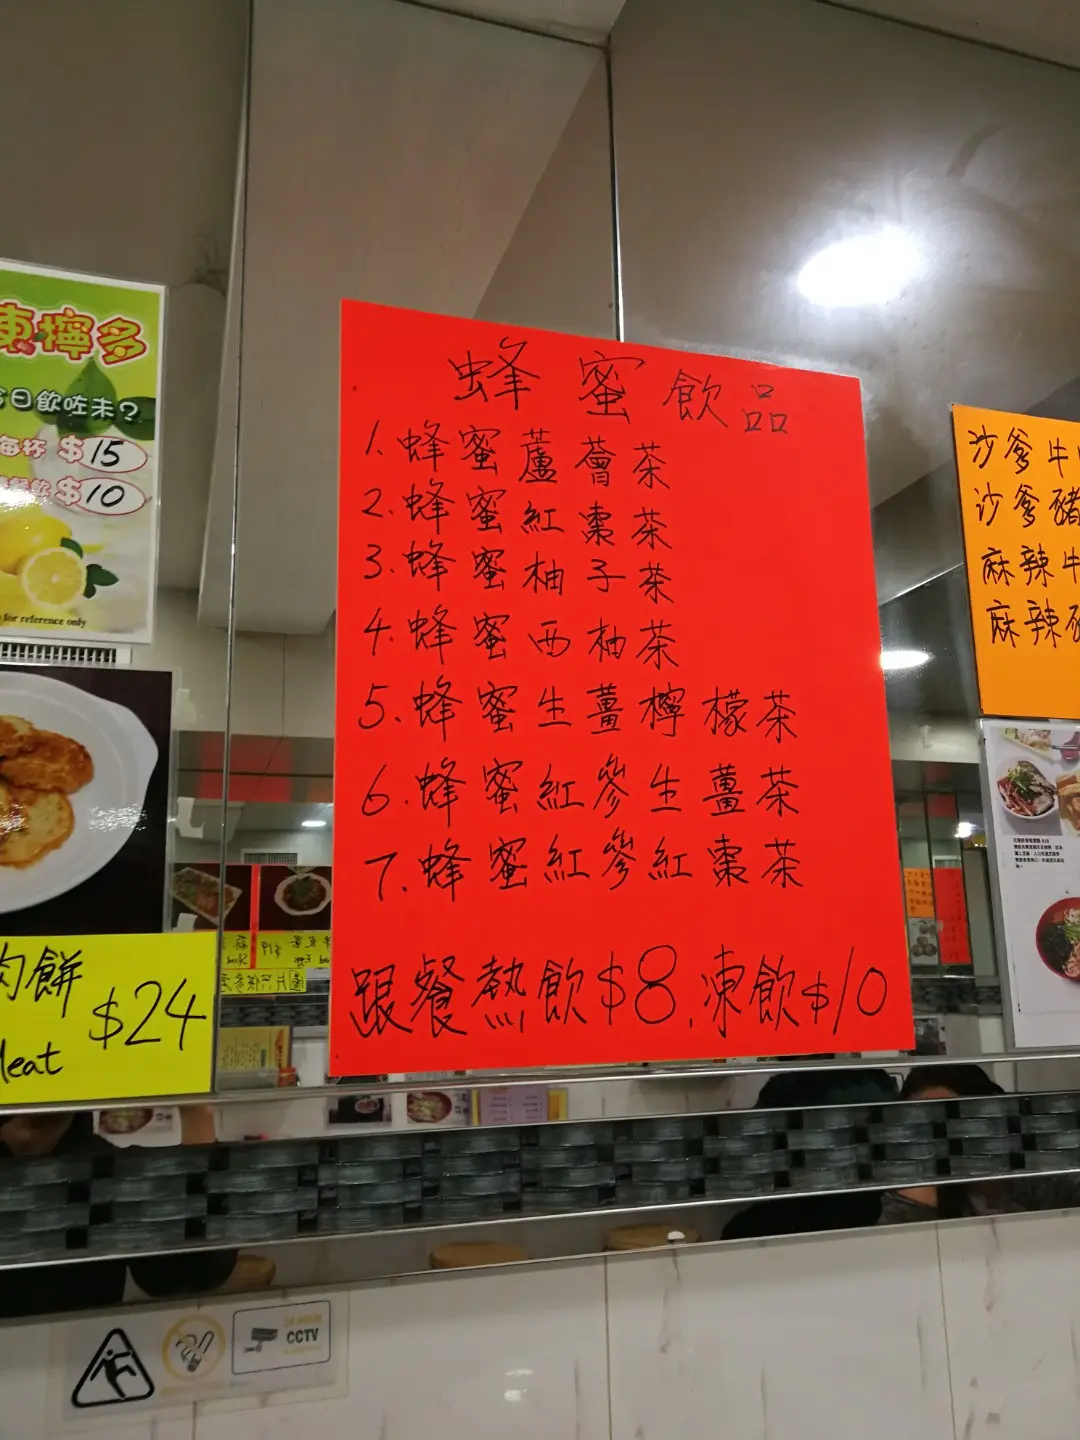 凍檸多
今日飲咗未?
每杯 $15
$10
for reference only
肉餅 $24
Meat
蜂蜜飲品
1.蜂蜜蘆薈茶
2.蜂蜜紅棗茶
3.蜂蜜柚子茶
4.蜂蜜西柚茶
5.蜂蜜生薑檸檬茶
6.蜂蜜紅參生薑茶
7.蜂蜜紅參紅棗茶
跟餐熱飲$8.凍飲$10
沙爹牛
沙爹豬
麻辣牛
麻辣
24 HOUR
CCTV